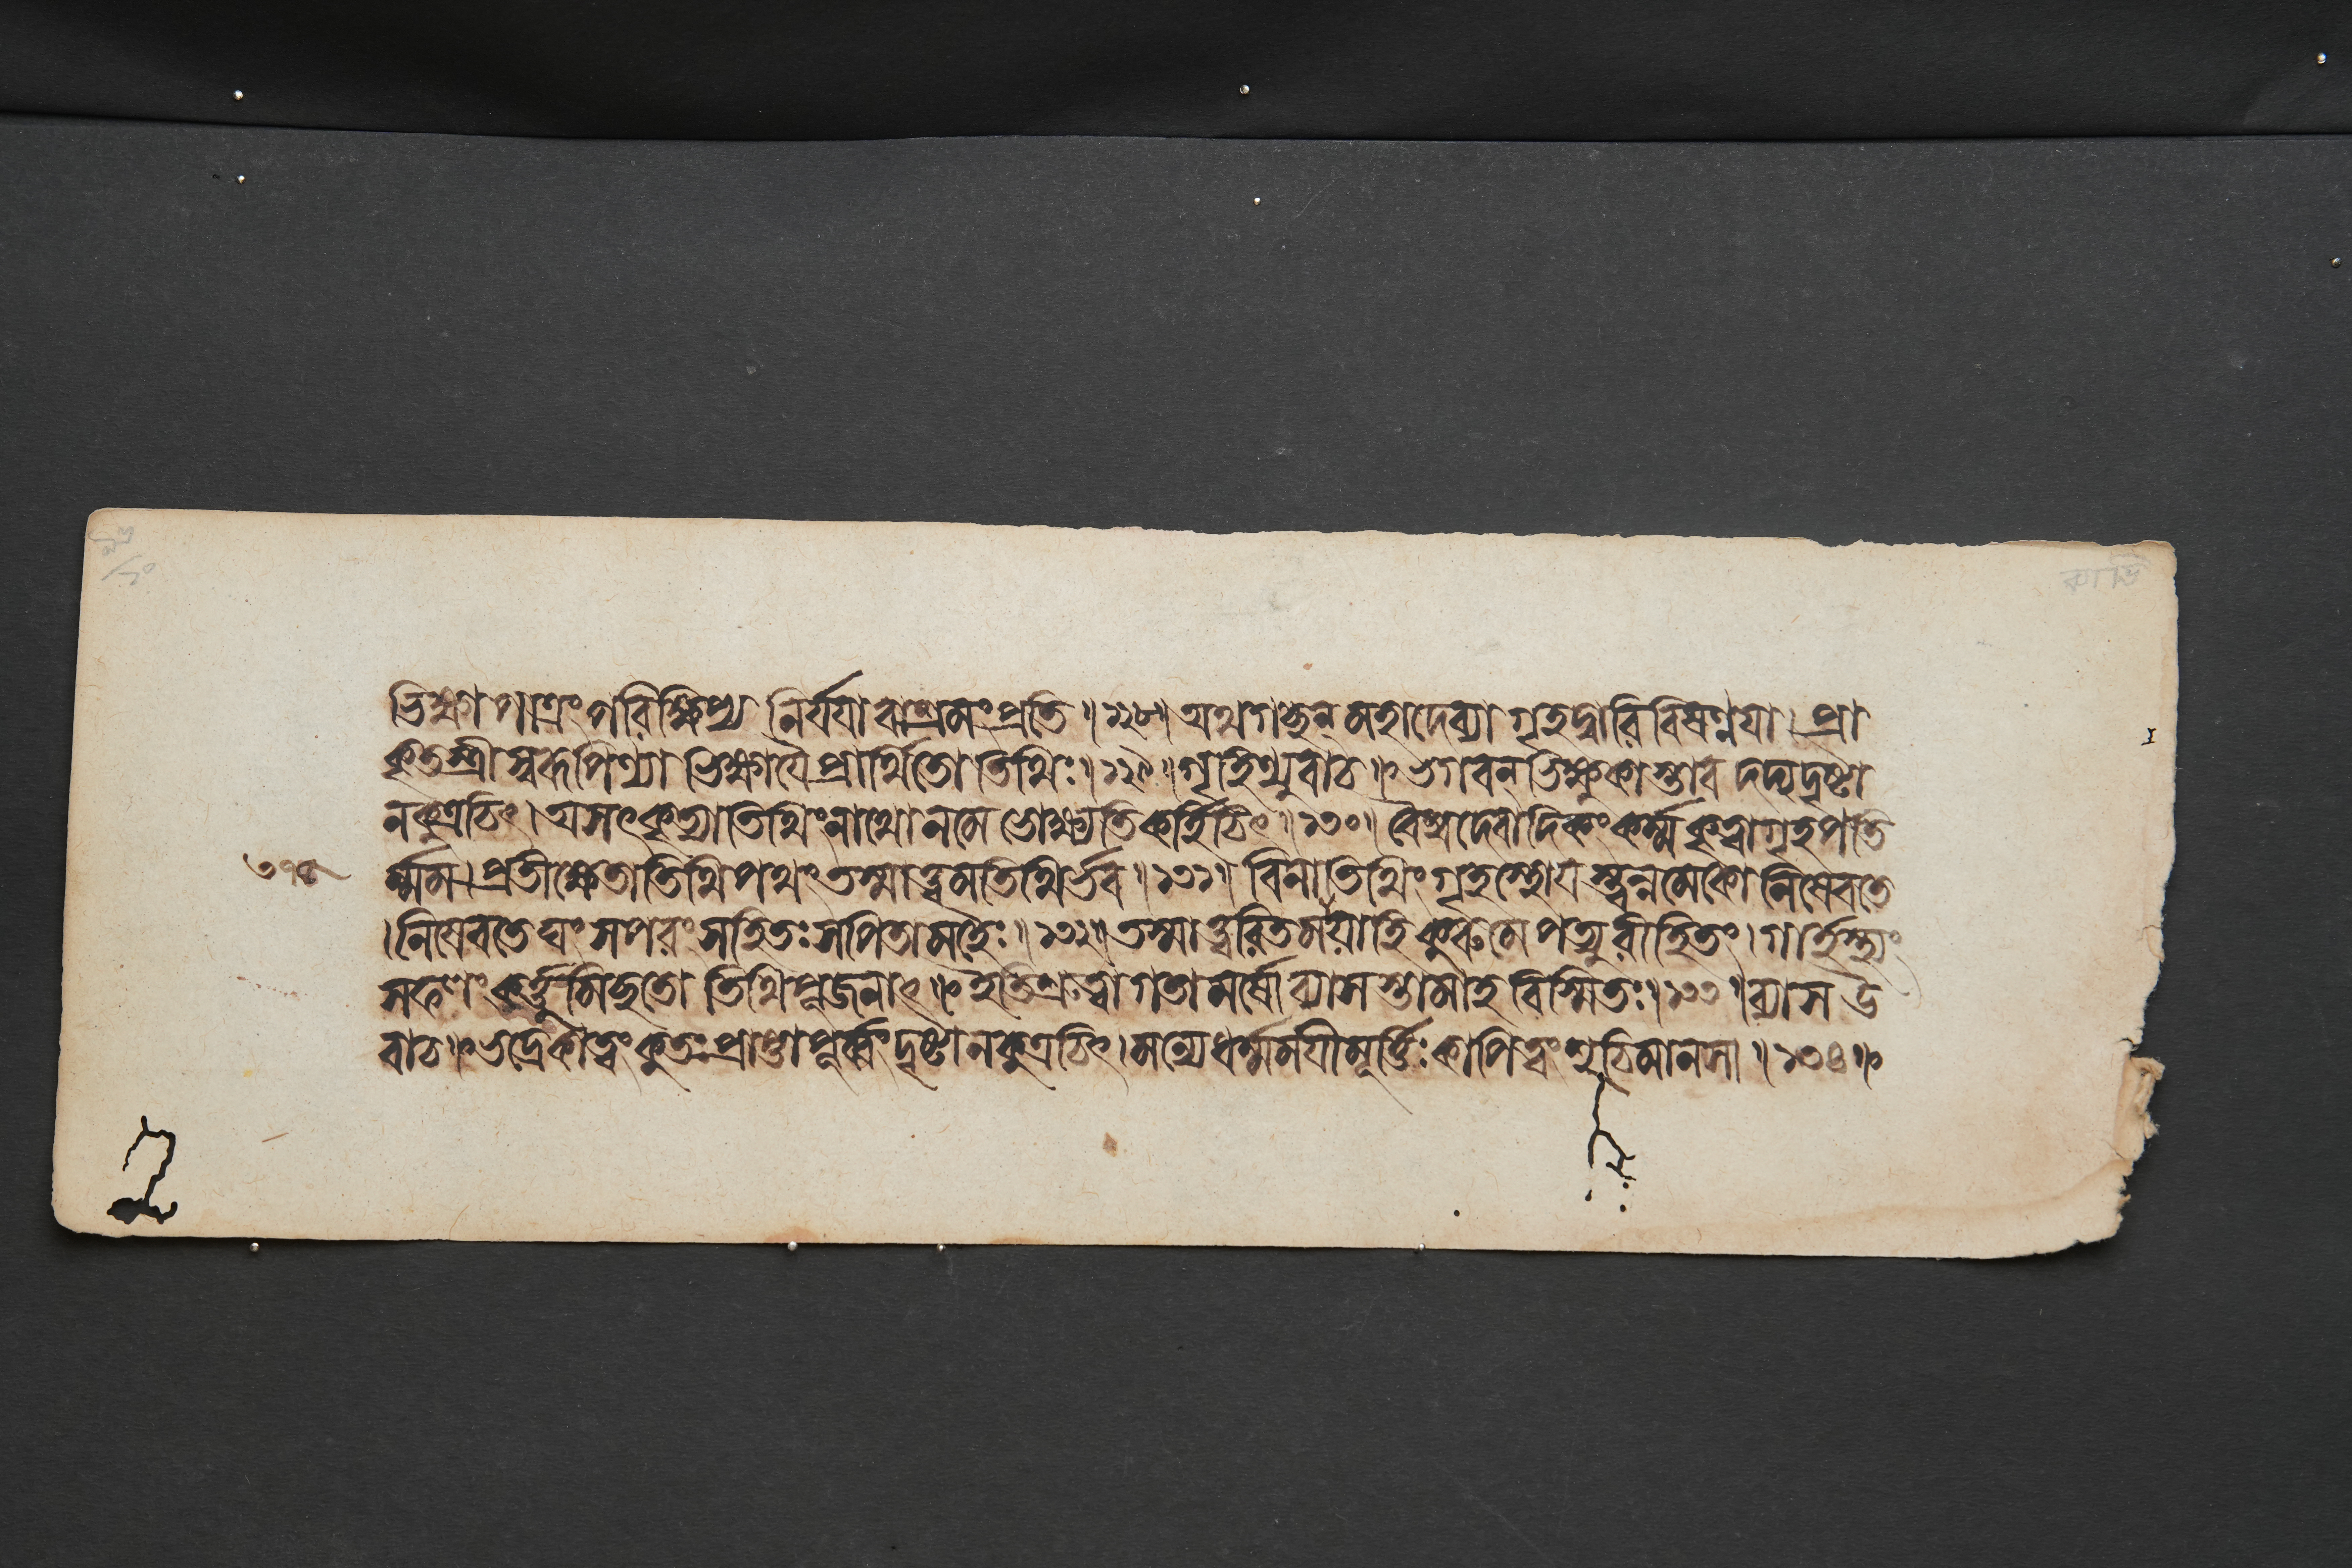 ভিক্ষাপাত্রং পরিক্ষিপ্য নির্যযাবাশ্রমং প্রতি ॥ ১২৮ ॥ অথ গচ্ছন্ মহাদেব্যা গৃহদ্বারি বিষণ্নযা । প্রা
কৃতস্ত্রীস্বরূপিণ্যা ভিক্ষাযৈ প্রার্থিতোতিথিঃ ॥ ১২৯ ॥ গৃহিণ্যুবাচ ॥ ভগবন্ ভিক্ষুকাস্তাবদদ্য দৃষ্টা
ন কুত্রচিৎ । অসৎকৃত্যাতিথিং নাথো ন মে ভোক্ষ্যতি কর্হিচিৎ ॥ ১৩০ ॥ বৈশ্বদেবাদিকং কর্ম্ম কৃত্বা গৃহপতি
৩১৫ র্ম্মম । প্রতীক্ষেতাতিথিপথং তস্মাত্ত্বমতিথির্ভব ॥ ১৩১ ॥ বিনাতিথিং গৃহস্থো যস্ত্বন্নমেকো নিষেবতে
। নিষেবতেঘং স পরং সহিতঃ স পিতামহৈঃ ॥ ১৩২ ॥ তস্মাত্ত্বরিতমাযাহি কুরু মে পত্যুরীহিতং । গার্হস্থ্যং
সফলং কর্ত্তুমিচ্ছতোতিথিপূজনাৎ ॥ ইতি শ্রুত্বা গতামর্ষো ব্যাসস্তামাহ বিস্মিতঃ ॥ ১৩৩ ॥ ব্যাস উ
বাচ ॥ ভদ্রে কা ত্বং কুতঃ প্রাপ্তা পূর্ব্বং দৃষ্টা ন কুত্রচিৎ । মন্যে ধর্ম্মমযী মূর্ত্তিঃ কাপি ত্বং শুচিমানসা ॥ ১৩৪ ॥